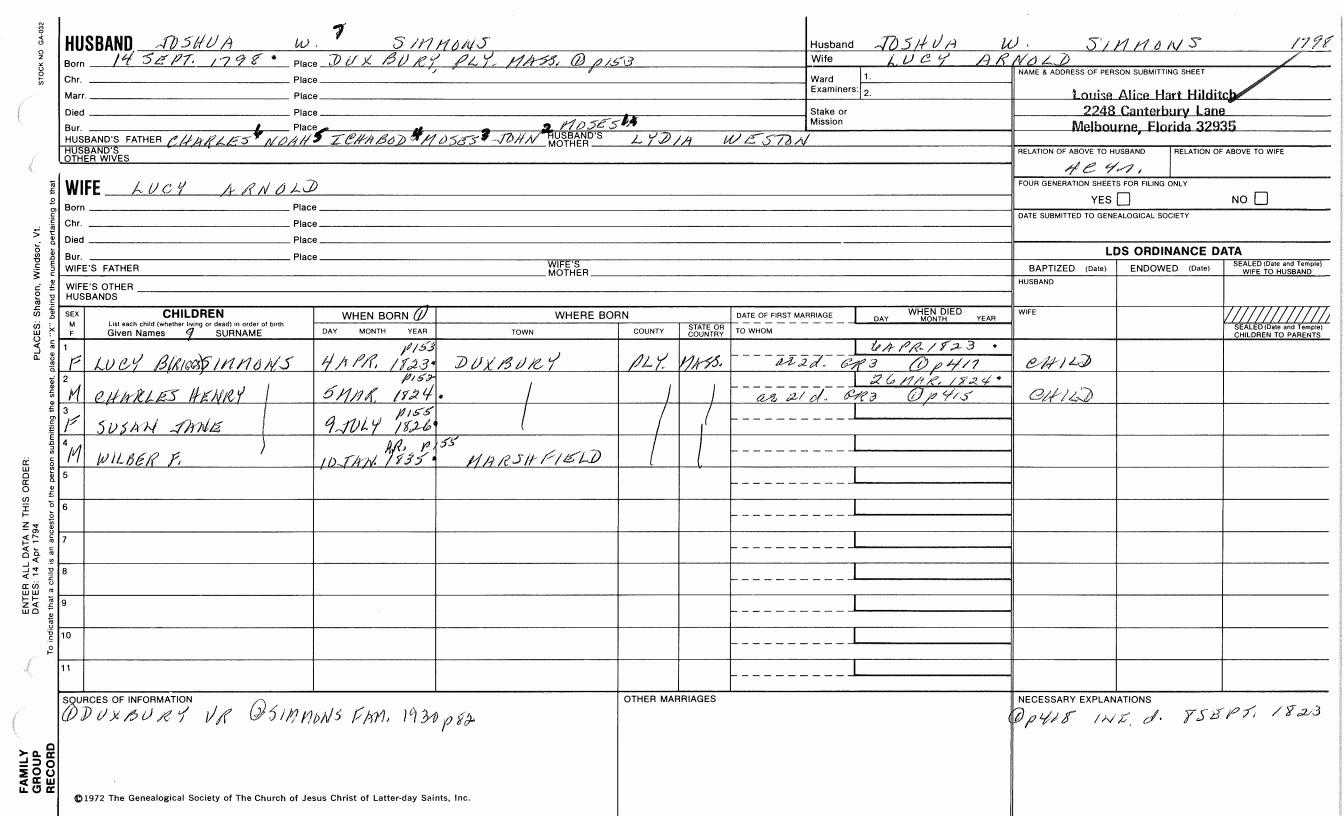 STOCK NO. GA-032
PLACES: Sharon, Windsor, Vt.
ENTER ALL DATA IN THIS ORDER:
DATES: 14 Apr 1794
To indicate that a child is an ancestor of the person submitting the sheet, place an "X" behind the number pertaining to that
FAMILY GROUP RECORD
HUSBAND JOSHUA W. 7 SIMMONS
Born 14 SEPT. 1798 Place DUXBURY, PLY. MASS. ① p153
Chr. Place
Marr. Place
Died Place
Bur. Place
HUSBAND'S FATHER CHARLES 6 NOAH 5 ICHABOD 4 MOSES 3 JOHN 2 MOSES 1 HUSBAND'S MOTHER LYDIA WESTON
HUSBAND'S OTHER WIVES
Husband JOSHUA W. SIMMONS 1798
Wife LUCY ARNOLD
Ward Examiners: 1.
2.
Stake or Mission
NAME & ADDRESS OF PERSON SUBMITTING SHEET
Louise Alice Hart Hilditch
2248 Canterbury Lane
Melbourne, Florida 32935
RELATION OF ABOVE TO HUSBAND RELATION OF ABOVE TO WIFE
FOUR GENERATION SHEETS FOR FILING ONLY
YES NO
DATE SUBMITTED TO GENEALOGICAL SOCIETY
WIFE LUCY ARNOLD
Born Place
Chr. Place
Died Place
Bur. Place
WIFE'S FATHER WIFE'S MOTHER
WIFE'S OTHER HUSBANDS
LDS ORDINANCE DATA
BAPTIZED (Date) ENDOWED (Date) SEALED (Date and Temple) WIFE TO HUSBAND
HUSBAND
WIFE
SEALED (Date and Temple) CHILDREN TO PARENTS
SEX M F CHILDREN WHEN BORN ① WHERE BORN DATE OF FIRST MARRIAGE WHEN DIED
List each child (whether living or dead) in order of birth
Given Names SURNAME DAY MONTH YEAR TOWN COUNTY STATE OR COUNTRY TO WHOM DAY MONTH YEAR
1 p153 6 APR. 1823
F LUCY B(RIGGS) SIMMONS 4 APR. 1823 DUXBURY PLY. MASS. ae 2d. GR3 ① p417 CHILD
2 p152 26 MAR. 1824
M CHARLES HENRY 5 MAR. 1824 ae 21d. GR3 ① p415 CHILD
3 p155
F SUSAN JANE 9 JULY 1826
4 p155
M WILBER F. 10 JAN. 1835 MARSHFIELD
5
6
7
8
9
10
11
SOURCES OF INFORMATION
① DUXBURY VR ② SIMMONS FAM. 1930 p82
OTHER MARRIAGES
NECESSARY EXPLANATIONS
① p418 INF. d. 8 SEPT. 1823
©1972 The Genealogical Society of The Church of Jesus Christ of Latter-day Saints, Inc.